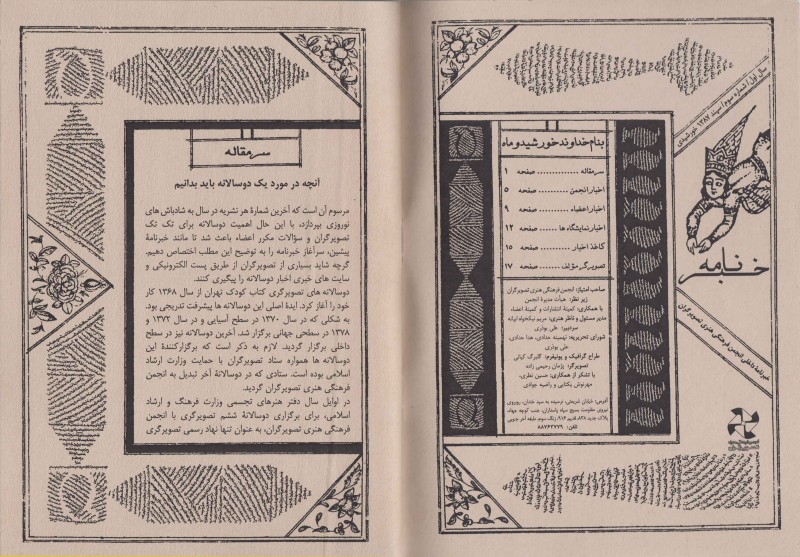 سال اول / شماره سوم / اسفند ۱۳۸۷ خورشیدی
خبرنامه
خبرنامهٔ داخلی انجمن فرهنگی هنری تصویرگران
بنام خداوند خورشید و ماه
سرمقاله ............ صفحه ۱
اخبار انجمن ........ صفحه ۵
اخبار اعضاء ........ صفحه ۹
اخبار نمایشگاه ها ... صفحه ۱۲
کاغذ اخبار ......... صفحه ۱۵
تصویرگر مؤلف ...... صفحه ۱۷
صاحب امتیاز: انجمن فرهنگی هنری تصویرگران
زیر نظر: هیأت مدیرهٔ انجمن
با همکاری: کمیتهٔ انتشارات و کمیتهٔ اعضاء
مدیر مسئول و ناظر هنری: مریم نیکخواه آبیانه
سردبیر: علی بوذری
شورای تحریریه: تهمینه حدادی، هدا حدادی،
علی بوذری
طراح گرافیک و یونیفرم: گلبرگ کیانی
تصویرگر: پژمان رحیمی زاده
با تشکر از همکاری: حسین نظری،
مهرنوش یکتایی و راضیه جوادی
آدرس: خیابان شریعتی، نرسیده به سید خندان، روبروی
نیروی مقاومت بسیج سپاه پاسداران، جنب کوچه جهاد،
پلاک جدید ۸۲۸، قدیم ۹۱۴، زنگ سوم، طبقه آخر جنوبی
تلفن: ۸۸۷۶۲۷۷۹
سرمقاله
آنچه در مورد یک دوسالانه باید بدانیم
مرسوم آن است که آخرین شمارهٔ هر نشریه در سال به شادباش های
نوروزی بپردازد، با این حال اهمیت دوسالانه برای تک تک
تصویرگران و سؤالات مکرر اعضاء باعث شد تا مانند خبرنامهٔ
پیشین، سرآغاز خبرنامه را به توضیح این مطلب اختصاص دهیم.
گرچه شاید بسیاری از تصویرگران از طریق پست الکترونیکی و
سایت های خبری اخبار دوسالانه را پیگیری کنند.
دوسالانه های تصویرگری کتاب کودک تهران از سال ۱۳۶۸ کار
خود را آغاز کرد. ایدهٔ اصلی این دوسالانه ها پیشرفت تدریجی بود.
به شکلی که در سال ۱۳۷۰ در سطح آسیایی و در سال ۱۳۷۲ و
۱۳۷۸ در سطحی جهانی برگزار شد. آخرین دوسالانه نیز در سطح
داخلی برگزار گردید. لازم به ذکر است که برگزارکنندهٔ این
دوسالانه ها همواره ستاد تصویرگران با حمایت وزارت ارشاد
اسلامی بوده است. ستادی که در دوسالانهٔ آخر تبدیل به انجمن
فرهنگی هنری تصویرگران گردید.
در اوایل سال دفتر هنرهای تجسمی وزارت فرهنگ و ارشاد
اسلامی، برای برگزاری دوسالانهٔ ششم تصویرگری با انجمن
فرهنگی هنری تصویرگران، به عنوان تنها نهاد رسمی تصویرگری